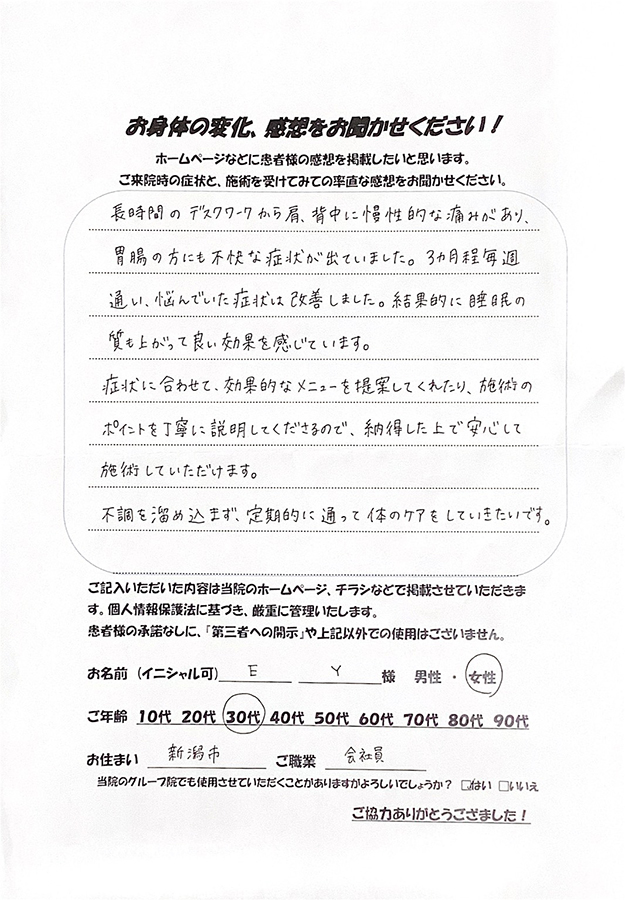 お身体の変化、感想をお聞かせください！
ホームページなどに患者様の感想を掲載したいと思います。
ご来院時の症状と、施術を受けてみての率直な感想をお聞かせください。
長時間のデスクワークから肩、背中に慢性的な痛みがあり、
胃腸の方にも不快な症状が出ていました。3カ月程毎週
通い、悩んでいた症状は改善しました。結果的に睡眠の
質も上がって良い効果を感じています。
症状に合わせて、効果的なメニューを提案してくれたり、施術の
ポイントを丁寧に説明してくださるので、納得した上で安心して
施術していただけます。
不調を溜め込まず、定期的に通って体のケアをしていきたいです。
ご記入いただいた内容は当院のホームページ、チラシなどで掲載させていただきま
す。個人情報保護法に基づき、厳重に管理いたします。
患者様の承諾なしに、「第三者への開示」や上記以外での使用はございません。
お名前（イニシャル可） E Y 様 男性 ・ 女性
ご年齢 10代 20代 30代 40代 50代 60代 70代 80代 90代
お住まい 新潟市 ご職業 会社員
当院のグループ院でも使用させていただくことがありますがよろしいでしょうか？ ☑はい □いいえ
ご協力ありがとうございました！